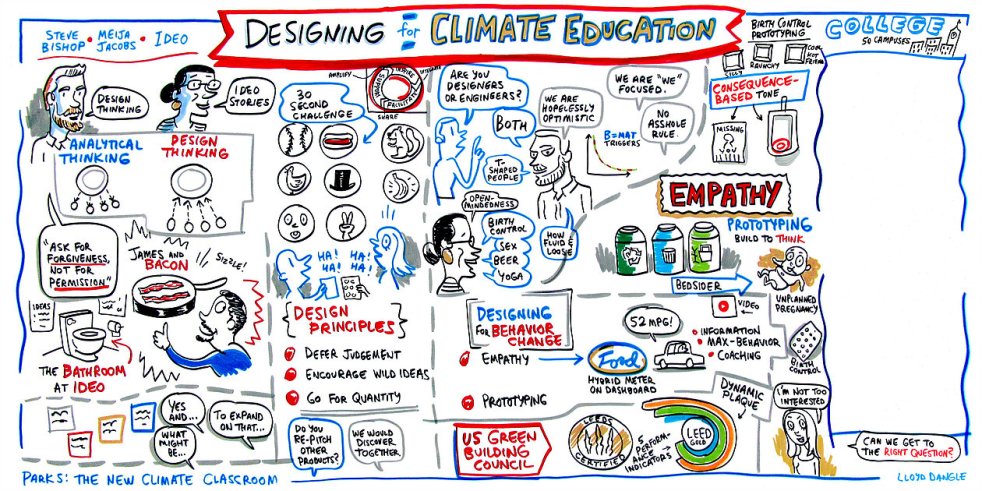 STEVE
BISHOP • MEIJA
JACOBS • IDEO
DESIGNING for CLIMATE EDUCATION
BIRTH CONTROL
PROTOTYPING
SILLY
RAUNCHY
COLLEGE
50 CAMPUSES
DESIGN
THINKING
IDEO
STORIES
ANALYTICAL
THINKING
DESIGN
THINKING
"ASK FOR
FORGIVENESS,
NOT FOR
PERMISSION."
JAMES AND
BACON
SIZZLE!
IDEAS
THE BATHROOM
AT IDEO
YES
AND...
WHAT
MIGHT
BE...
TO EXPAND
ON THAT...
AMPLIFY
INSPIRE
FACILITATE
SHARE
30
SECOND
CHALLENGE
HA!
HA!
HA!
HA!
DESIGN
PRINCIPLES
DEFER JUDGEMENT
ENCOURAGE WILD IDEAS
GO FOR QUANTITY
DO YOU
RE-PITCH
OTHER
PRODUCTS?
WE WOULD
DISCOVER
TOGETHER
ARE YOU
DESIGNERS
OR ENGINEERS?
BOTH
T-
SHAPED
PEOPLE
WE ARE
HOPELESSLY
OPTIMISTIC
WE ARE "WE"
FOCUSED.
NO
ASSHOLE
RULE.
B=MAT
TRIGGERS
OPEN-
MINDEDNESS
BIRTH
CONTROL
SEX
BEER
YOGA
HOW
FLUID
LOOSE
CONSEQUENCE-
BASED TONE
MISSING
EMPATHY
PROTOTYPING
BUILD TO THINK
BEDSIDER
UNPLANNED
PREGNANCY
DESIGNING
FOR BEHAVIOR
CHANGE
EMPATHY
PROTOTYPING
Ford
HYBRID METER
ON DASHBOARD
52 MPG!
VIDEO
• INFORMATION
• MAX-BEHAVIOR
• COACHING
BIRTH
CONTROL
DYNAMIC
PLAQUE
US GREEN
BUILDING
COUNCIL
LEEDS
CERTIFIED
5
PERFORM-
ANCE
INDICATORS
LEED
GOLD
I'M NOT TOO
INTERESTED
CAN WE GET TO
THE RIGHT QUESTION?
PARKS: THE NEW CLIMATE CLASSROOM
LLOYD DANGLE